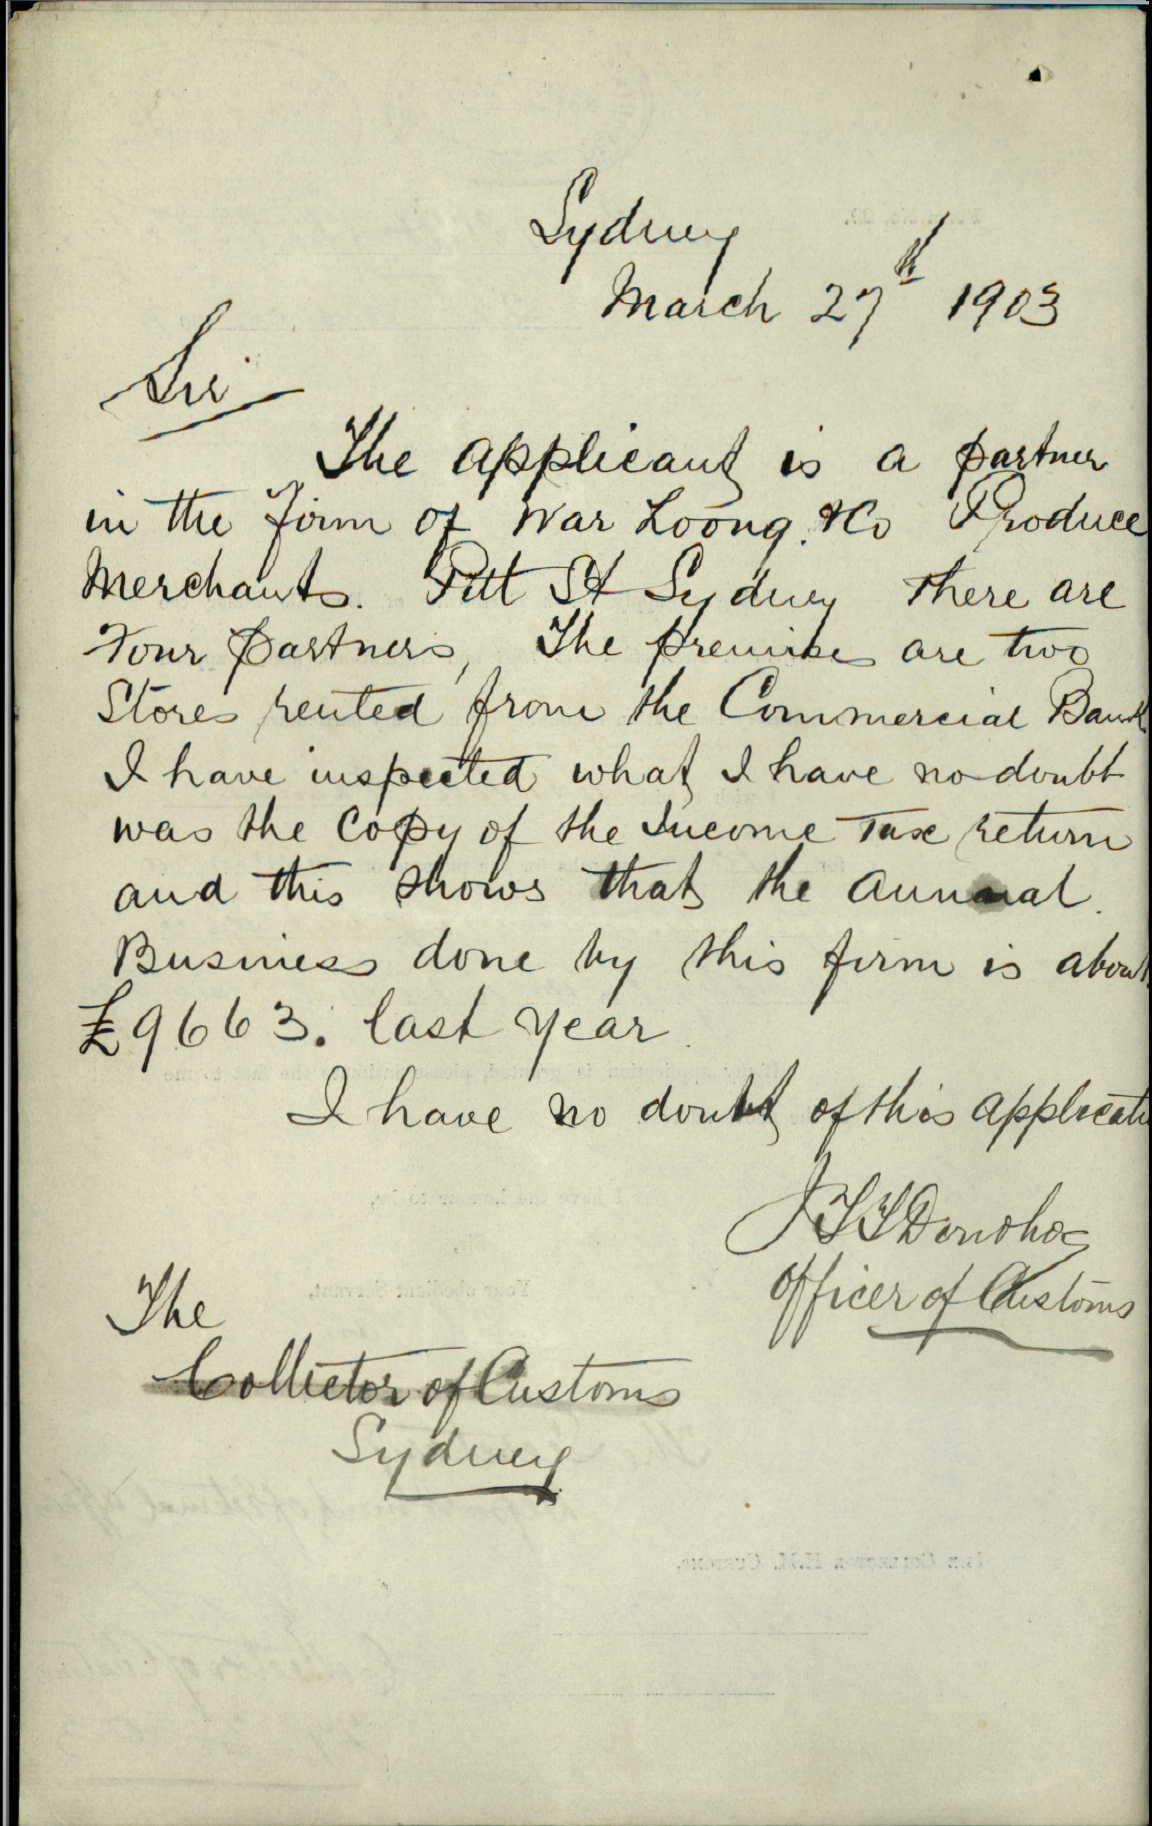 Sydney
March 27th 1903
Sir
The applicant is a partner
in the firm of War Loong & Co Produce
Merchants. Pitt St Sydney There are
Four partners, The premises are two
Stores rented from the Commercial Bank
I have inspected what I have no doubt
was the Copy of the Income Tax return
and this shows that the annual
Business done by this firm is about
£9663. last year
I have no doubt of this applicati
J T T Donohoe
Officer of Customs
The
Collector of Customs
Sydney